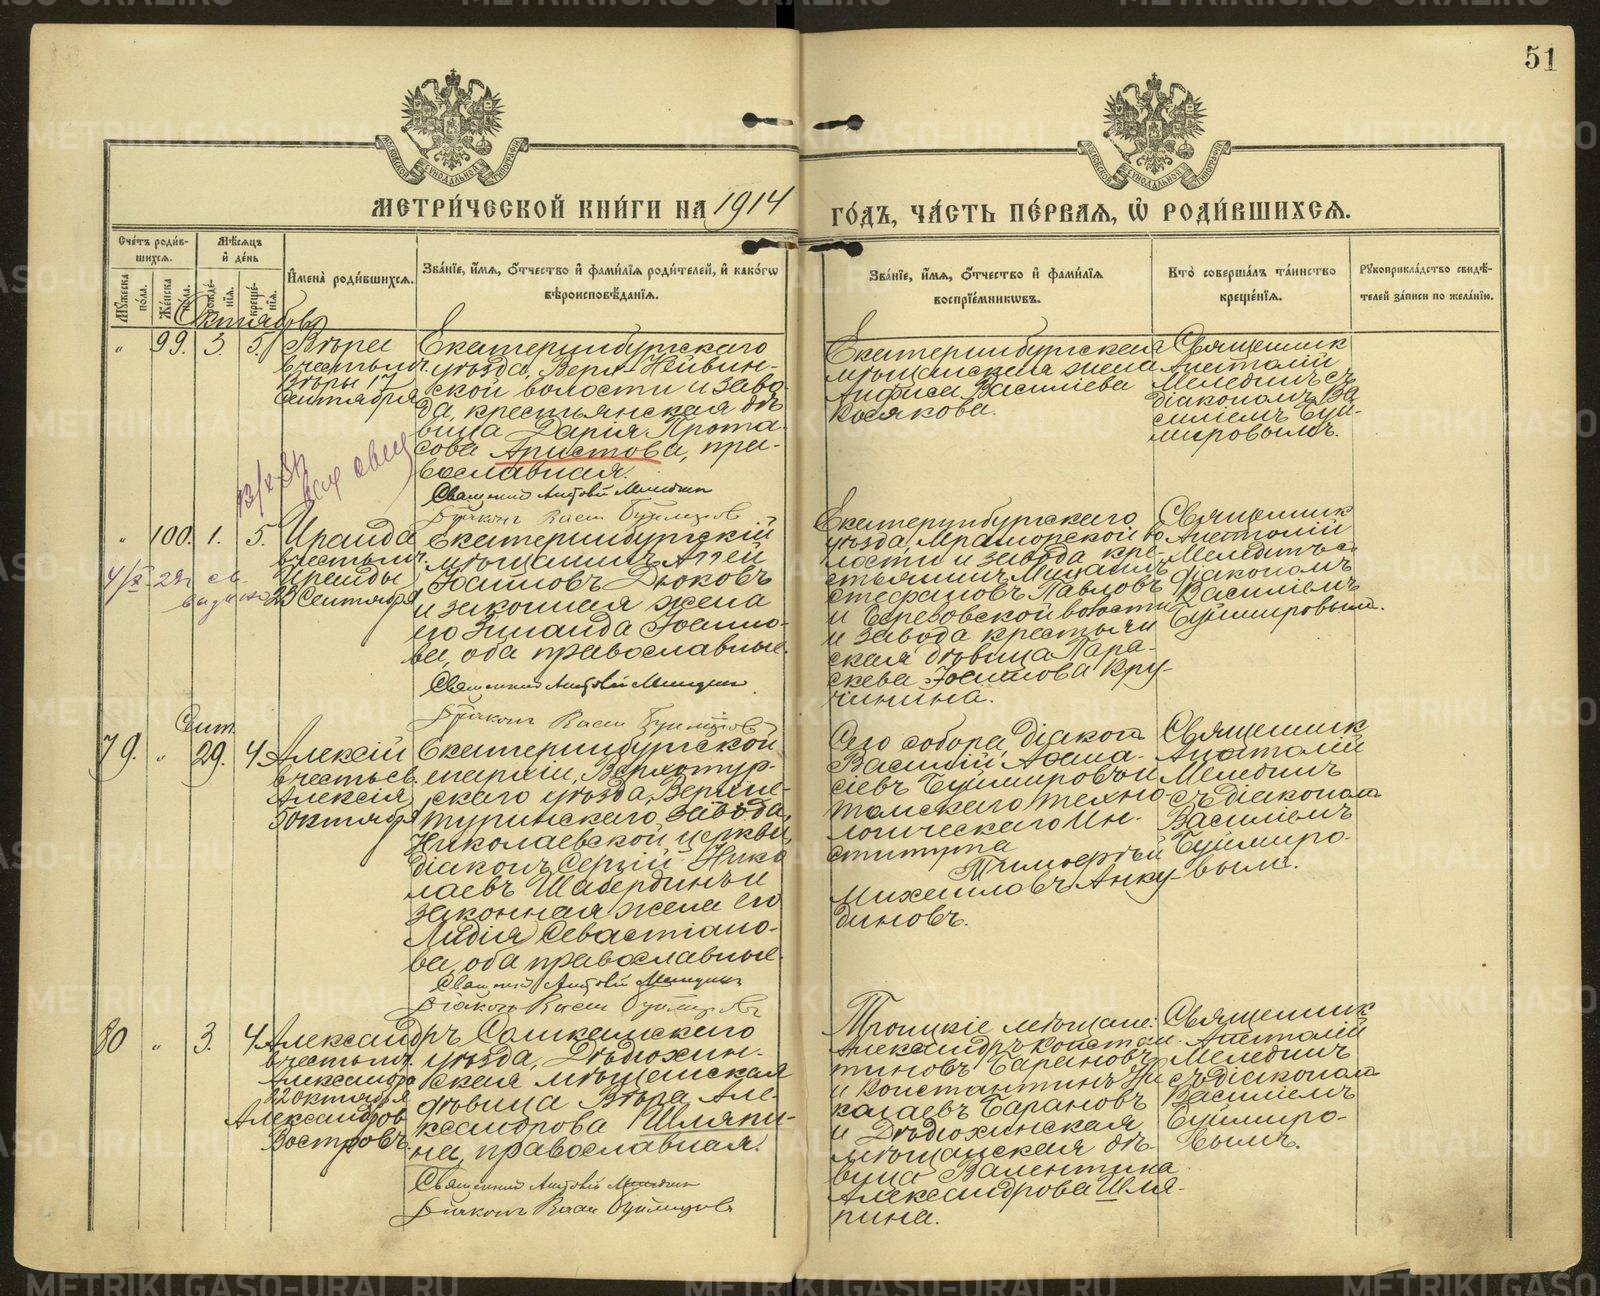 51
МОСКОВСКОЙ СѴНОДАЛЬНОЙ ТИПОГРАФІИ
МОСКОВСКОЙ СѴНОДАЛЬНОЙ ТИПОГРАФІИ
МЕТРИ́ЧЕСКОЙ КНИ́ГИ НА 1914 ГО́ДЪ, ЧА́СТЬ ПЕ́РВАЯ, Ѡ РОДИ́ВШИХСЯ.
Сче́тъ роди́в-
шихся.
Му́жеска по́ла.
Же́нска по́ла.
Мѣ́сяцъ
и҆ де́нь
рожде́-
нія.
креще́-
нія.
И҆мена̀ роди́вшихся.
Зва́нїе, и҆́мя, ѻ҆́тчество и҆ фами́лїя роди́телей, и҆ како́гѡ
вѣроисповѣ́данїя.
Зва́нїе, и҆́мя, ѻ҆́тчество и҆ фами́лїя
воспрїе́мникѡвъ.
Кто̀ соверша́лъ та́инство
креще́нїя.
Рꙋкоприкла́дство свидѣ́-
телей за́писи по жела́нїю.
Октябрь
" 99. 3. 5.
Вѣра
въ честь мч.
Вѣры 17
Сентября
Екатеринбургскаго
уѣзда, Верх-Нейвин-
ской волости и заво-
да, крестьянская дѣ-
вица Дарія Прота-
сова Аристова, пра-
вославная.
Священникъ Анатолій Меледин
Діаконъ Васи Буймиров
Екатеринбургская
мѣщанская жена
Анфиса Васильева
Косякова.
Священник
Анатолій
Мелединъ съ
діакономъ Ва-
силіемъ Буй-
мировымъ.
" 100. 1. 5.
Ираида
въ честь мч.
Ираиды
23 Сентября
Екатеринбургскій
мѣщанинъ
Іоанновъ Дюковъ
и законная жена
его Зинаида Іоанно-
ва, оба православные.
Священникъ Анатолій Меледин
Діаконъ Васи Буймиров
Екатеринбургскаго
уѣзда, Мраморской во-
лости и завода кре-
стьянинъ Михаилъ
Стефановъ Павловъ
и Березовской волости
и завода крестьян-
ская дѣвица Пара-
скева Іоаннова Кру-
чинина.
Священник
Анатолій
Мелединъ съ
діакономъ
Василіемъ
Буймировымъ.
Сент.
79. " 29. 4
Алексій
въ честь св.
Алексія
Октября
Екатеринбургской
епархіи, Верхотур-
скаго уѣзда, Верхне-
туринскаго завода,
Николаевской церкви,
діаконъ Сергій Нико-
лаевъ и
законная жена его
Лидія Севастіано-
ва, оба православные.
Священникъ Анатолій Меледин
Діаконъ Васи Буймировъ
Сего собора діакон
Василій Афана-
сіевъ Буймировъ и
Томскаго техно-
логическаго Ин-
ститута
Михаиловъ Анку-
диновъ.
Священник
Анатолій
Мелединъ
съ діакономъ
Василіемъ
Буймиро-
вымъ.
80 " 3. 4
Александръ
въ честь мч.
Александра
22 октября
Александров
Востровъ.
Соликамскаго
уѣзда, Дедюхин-
ская мѣщанская
дѣвица Вѣра Але-
ксандрова Шляпи-
на, православная.
Священникъ Анатолій Меледин
Діаконъ Васи Буймировъ
Троицкіе мѣщане:
Александръ Констан-
тиновъ Барановъ
и Константинъ Ни-
колаевъ Барановъ
и Дедюхинская
мѣщанская дѣ-
вица Валентина
Александрова Шля-
пина.
Священник
Анатолій
Мелединъ
съ діакономъ
Василіемъ
Буймиро-
вымъ.
METRIKI.GASO-URAL.RU